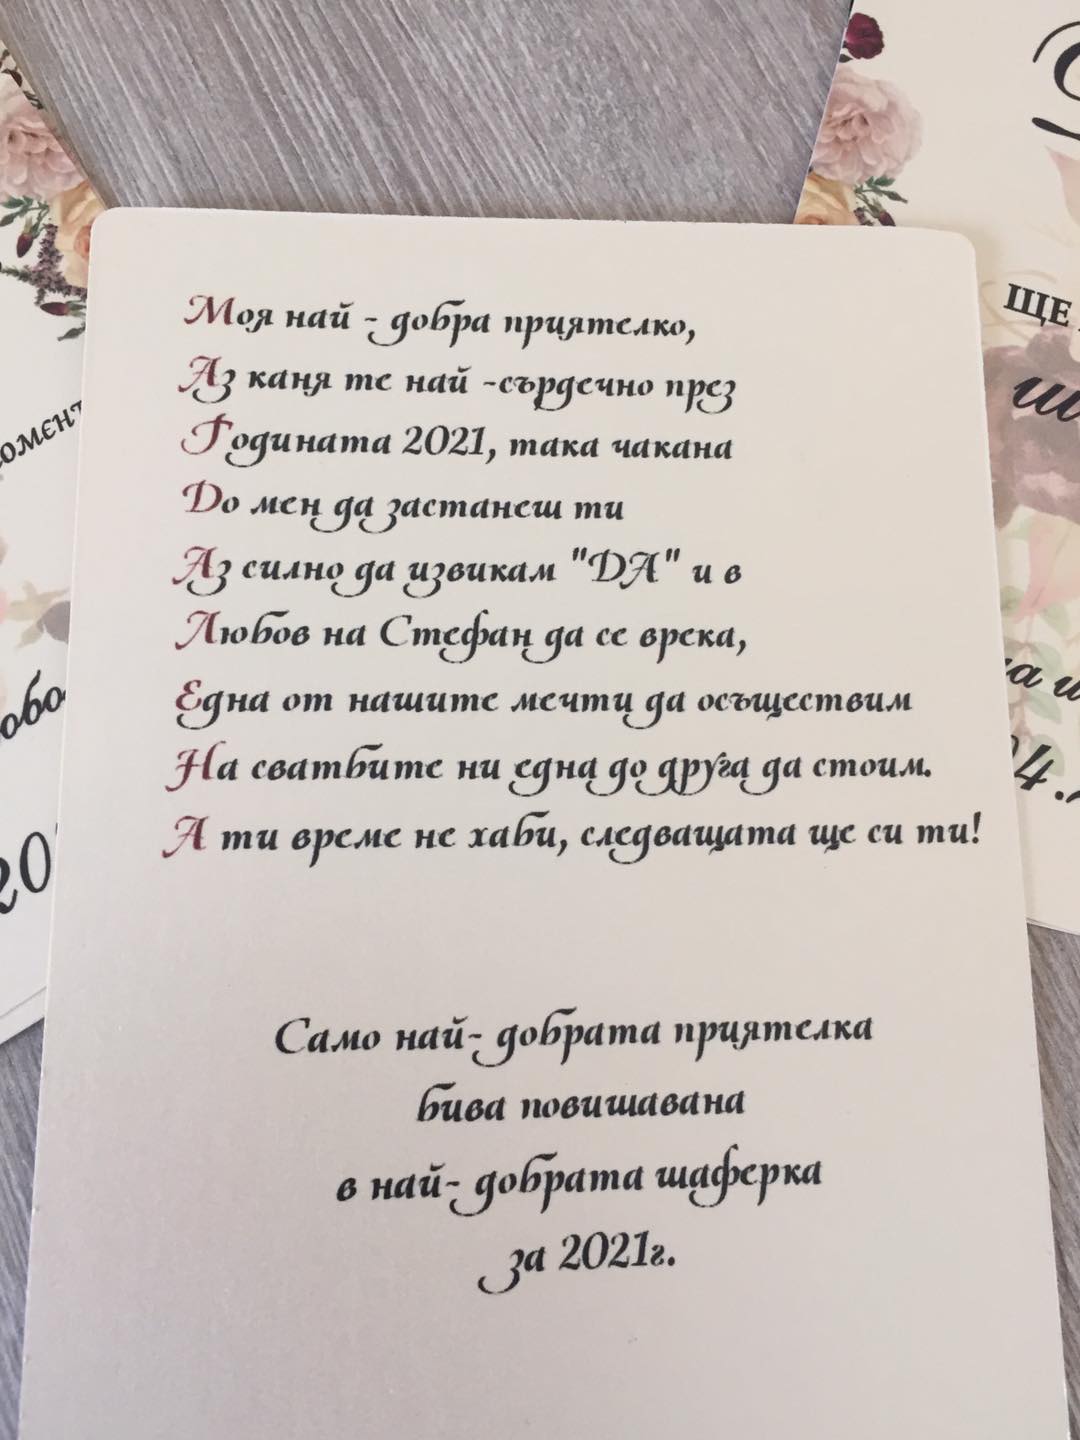 Моя най - добра приятелко,
Аз каня те най -сърдечно през
Годината 2021, така чакана
До мен да застанеш ти
Аз силно да извикам "ДА" и в
Любов на Стефан да се врека,
Една от нашите мечти да осъществим
На сватбите ни една до друга да стоим.
А ти време не хаби, следващата ще си ти!
Само най- добрата приятелка
бива повишавана
в най- добрата шаферка
за 2021г.
ЩЕ